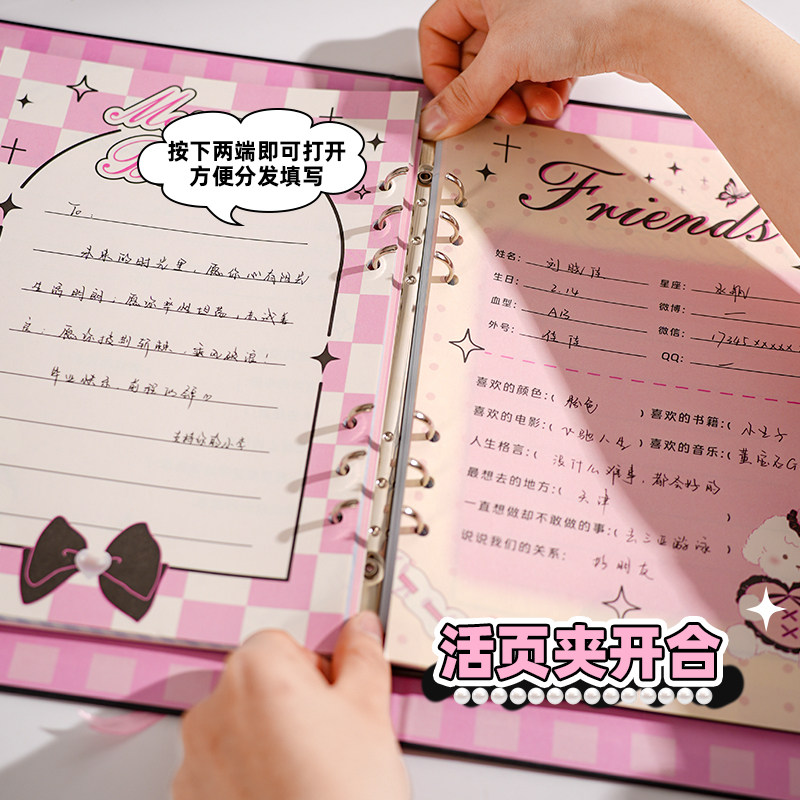 按下两端即可打开
方便分发填写
To,
未来的时光里，愿你心有阳光
生活明朗；愿你率性坦荡，永

毕业快乐，前程似锦
Friends
姓名：刘晓佳
星座：水瓶
生日：2.14
微博：一
血型：AB
微信：17345xxxxxx
外号：佳佳
QQ：一
喜欢的颜色：( 粉色 )
喜欢的书籍：( 小王子
喜欢的电影：( 飞驰人生 )
喜欢的音乐：(
人生格言：( 没什么难事，都会好的
最想去的地方：( 天津 )
一直想做却不敢做的事：( 去三亚游泳 )
说说我们的关系：好朋友
活页夹开合